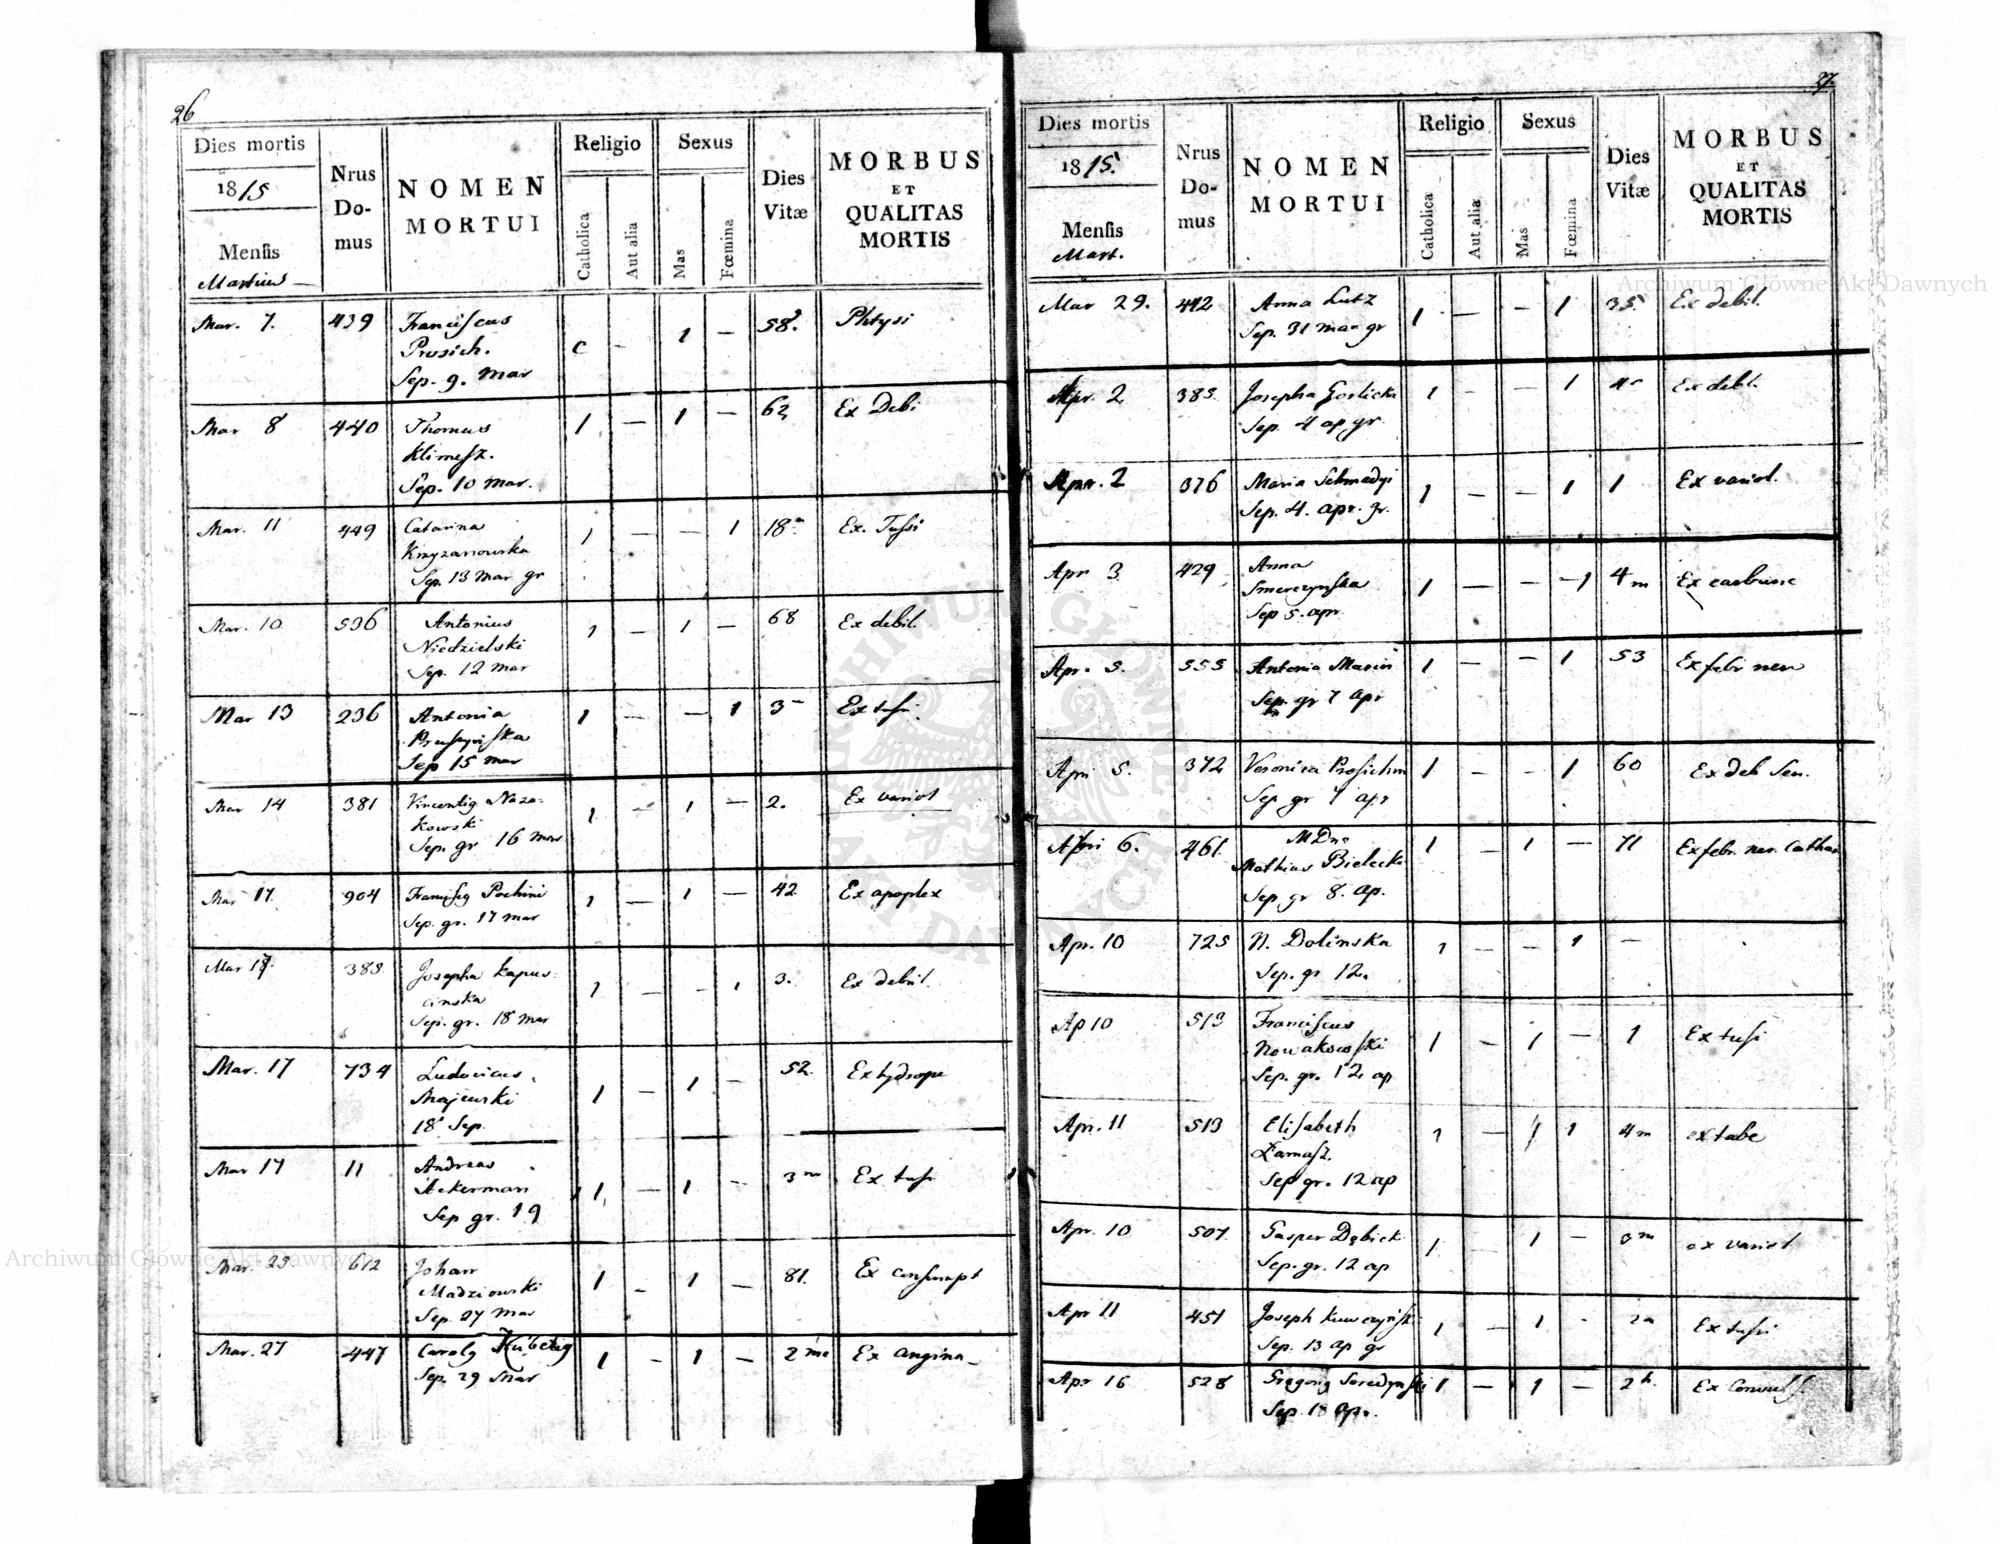 26
Dies mortis
1815
Mensis
Martius
Nrus
Do-
mus
NOMEN
MORTUI
Religio
Catholica
Aut alia
Sexus
Mas
Fœmina
Dies
Vitæ
MORBUS
ET
QUALITAS
MORTIS
Mar. 7. 439 Franciscus 58. Phtysi
Prosich. c - 1 -
Sep. 9. Mar
Mar 8 440 Thomas 1 — 1 — 62 Ex Debi
Klimesz.
Sep. 10 Mar.
Mar. 11 449 Catarina 1 — — 1 18 Ex. Tussi
Krzyzanowska
Sep. 13 Mar gr
Mar. 10 536 Antonius 1 — 1 — 68 Ex debil.
Niedzielski
Sep. 12 Mar
Mar 13 236 Antonia 1 — — 1 3 Ex tussi.
Sep 15 Mar
Mar 14 381 1 — 1 — 2. Ex variol
kowski
Sep. gr 16 Mar
Mar 17. 904 Pochini 1 — 1 — 42 Ex apoplex
Sep. gr. 17 Mar
Mar 385. Josepha Kapus- 1 — — 1 3. Ex debil.
cinska
Sep. gr. 18 Mar
Mar. 17 734 Ludovicus 1 — 1 — 52. Ex hydrope
Majewski
18 Sep.
Mar 17 11 Andreas 1 — 1 — 3 m Ex tussi
Ackerman
Sep gr. 19
Mar. 612 Johan 1 - 1 — 81. Ex consumpt
Madziowski
Sep. 27 Mar
Mar. 27 447 1 - 1 — Ex angina
Sep. 29 Mar
27.
Dies mortis
1815.
Mensis
Mart.
Nrus
Do-
mus
NOMEN
MORTUI
Religio
Catholica
Aut alia
Sexus
Mas
Fœmina
Dies
Vitæ
MORBUS
ET
QUALITAS
MORTIS
Mar 29. 442 Anna Lutz 1 — — 1 35 Ex debil.
Sep. 31 Mar gr
Apr. 2 385 Josepha Gorlicka 1 — — 1 Ex debl.
Sep. 4 ap gr
Apr. 2 376 Maria 1 — — 1 1 Ex variol.
Sep. 4. apr. gr.
Apr 3 429 Anna 1 — — 1 4 m
Smerczynska
Sep 5. apr.
Apr. 5. 555 Antonia 1 — — 1 53 Ex febr nerv
Sep. gr 7 Apr
Apr 5. 372 Veronica 1 — — 1 60 Ex deb Sen.
Sep gr 7 apr
6. 461. 1 — 1 — 71 Ex febr. ner.
Mathias
Sep gr 8. ap.
Apr. 10 725 N. Dolinska 1 — — 1 —
Sep. gr 12.
Ap 10 513 Franciscus 1 — 1 — 1 Ex tussi
Nowakowski
Sep. gr. 12 ap
Apr. 11 513 Elisabeth 1 — 1 4 m ex tabe
Sep gr. 12 ap
Apr. 10 507. Gasper 1 — 1 — ex variol.
Sep. gr. 12 ap
Apr 11 451 Joseph 1 — 1 - Ex tussi
Sep. 13 ap gr
Apr 16 528 1 — 1 — 2 h.
Sep. 18 apr.
Archiwum Główne Akt Dawnych
Archiwum Główne Akt Dawnych
ARCHIWUM GŁÓWNE AKT DAWNYCH